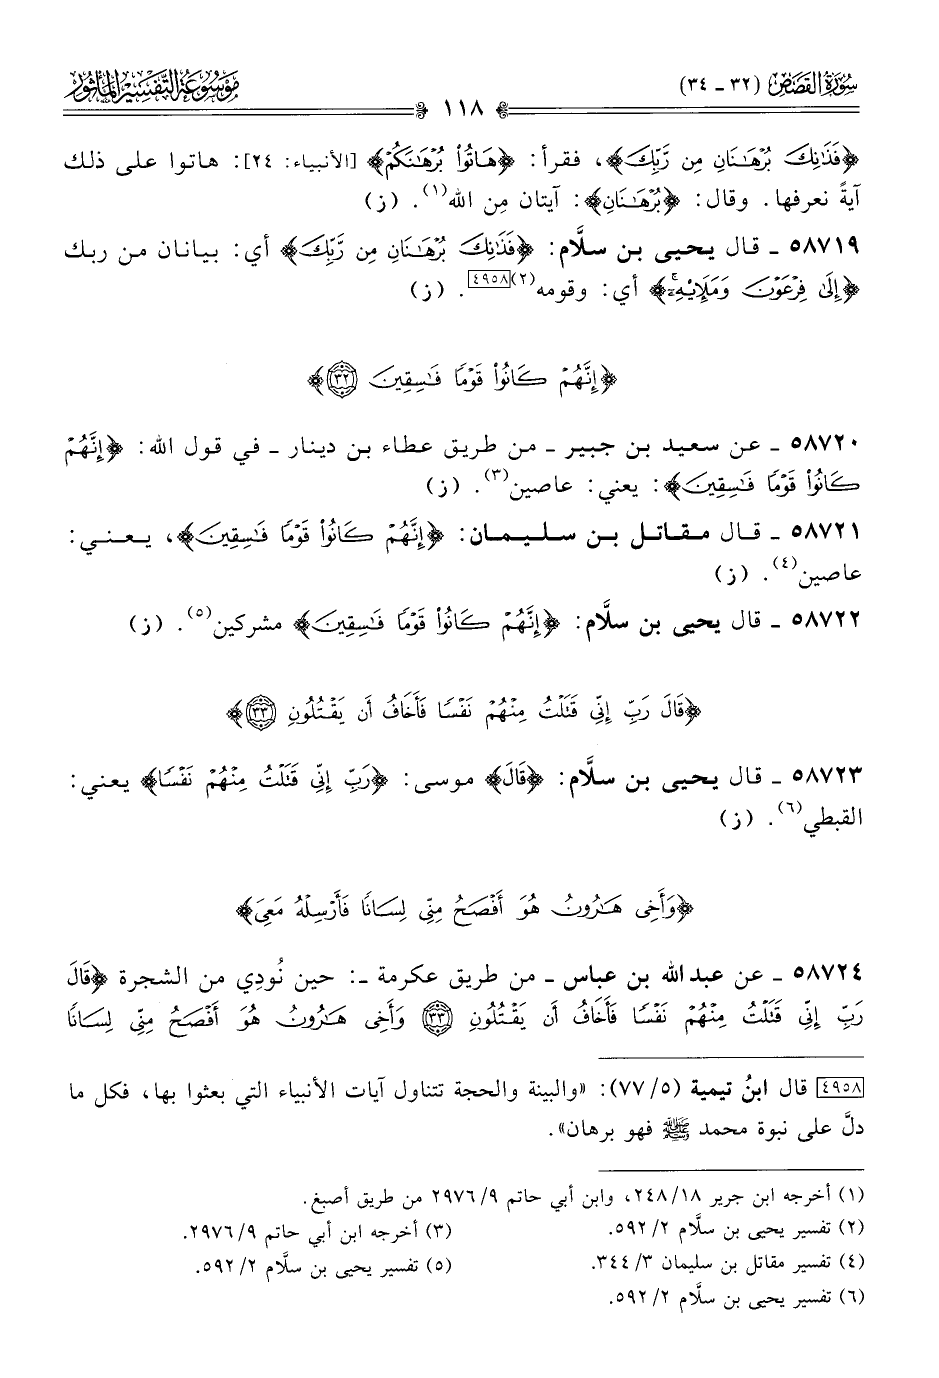 سُورَةُ القَصَصِ (٣٢ - ٣٤)
١١٨
مَوْسُوعَة التَّفْسِير المَأْثُور
﴿فَذَٰنِكَ بُرْهَٰنَانِ مِن رَّبِّكَ﴾، فقرأ: ﴿هَاتُوا۟ بُرْهَٰنَكُمْ﴾ [الأنبياء: ٢٤]: هاتوا على ذلك
آيةً نعرفها. وقال: ﴿بُرْهَٰنَانِ﴾: آيتان مِن الله(١). (ز)
٥٨٧١٩ - قال يحيى بن سلَّام: ﴿فَذَٰنِكَ بُرْهَٰنَانِ مِن رَّبِّكَ﴾ أي: بيانان من ربك
﴿إِلَىٰ فِرْعَوْنَ وَمَلَإِيْهِۦٓ﴾ أي: وقومه(٢)[٤٩٥٨]. (ز)
﴿إِنَّهُمْ كَانُوا۟ قَوْمًا فَٰسِقِينَ ٣٢﴾
٥٨٧٢٠ - عن سعيد بن جبير - من طريق عطاء بن دينار - في قول الله: ﴿إِنَّهُمْ
كَانُوا۟ قَوْمًا فَٰسِقِينَ﴾: يعني: عاصين(٣). (ز)
٥٨٧٢١ - قال مقاتل بن سليمان: ﴿إِنَّهُمْ كَانُوا۟ قَوْمًا فَٰسِقِينَ﴾، يعني:
عاصين(٤). (ز)
٥٨٧٢٢ - قال يحيى بن سلَّام: ﴿إِنَّهُمْ كَانُوا۟ قَوْمًا فَٰسِقِينَ﴾ مشركين(٥). (ز)
﴿قَالَ رَبِّ إِنِّى قَتَلْتُ مِنْهُمْ نَفْسًا فَأَخَافُ أَن يَقْتُلُونِ ٣٣﴾
٥٨٧٢٣ - قال يحيى بن سلَّام: ﴿قَالَ﴾ موسى: ﴿رَبِّ إِنِّى قَتَلْتُ مِنْهُمْ نَفْسًا﴾ يعني:
القبطي(٦). (ز)
﴿وَأَخِى هَٰرُونُ هُوَ أَفْصَحُ مِنِّى لِسَانًا فَأَرْسِلْهُ مَعِىَ﴾
٥٨٧٢٤ - عن عبد الله بن عباس - من طريق عكرمة -: حين نُودِي من الشجرة ﴿قَالَ
رَبِّ إِنِّى قَتَلْتُ مِنْهُمْ نَفْسًا فَأَخَافُ أَن يَقْتُلُونِ ٣٣ وَأَخِى هَٰرُونُ هُوَ أَفْصَحُ مِنِّى لِسَانًا
[٤٩٥٨] قال ابنُ تيمية (٥/ ٧٧): «والبينة والحجة تتناول آيات الأنبياء التي بعثوا بها، فكل ما
دلَّ على نبوة محمد ﷺ فهو برهان».
(١) أخرجه ابن جرير ١٨/ ٢٤٨، وابن أبي حاتم ٩/ ٢٩٧٦ من طريق أصبغ.
(٢) تفسير يحيى بن سلَّام ٢/ ٥٩٢. (٣) أخرجه ابن أبي حاتم ٩/ ٢٩٧٦.
(٤) تفسير مقاتل بن سليمان ٣/ ٣٤٤. (٥) تفسير يحيى بن سلَّام ٢/ ٥٩٢.
(٦) تفسير يحيى بن سلَّام ٢/ ٥٩٢.